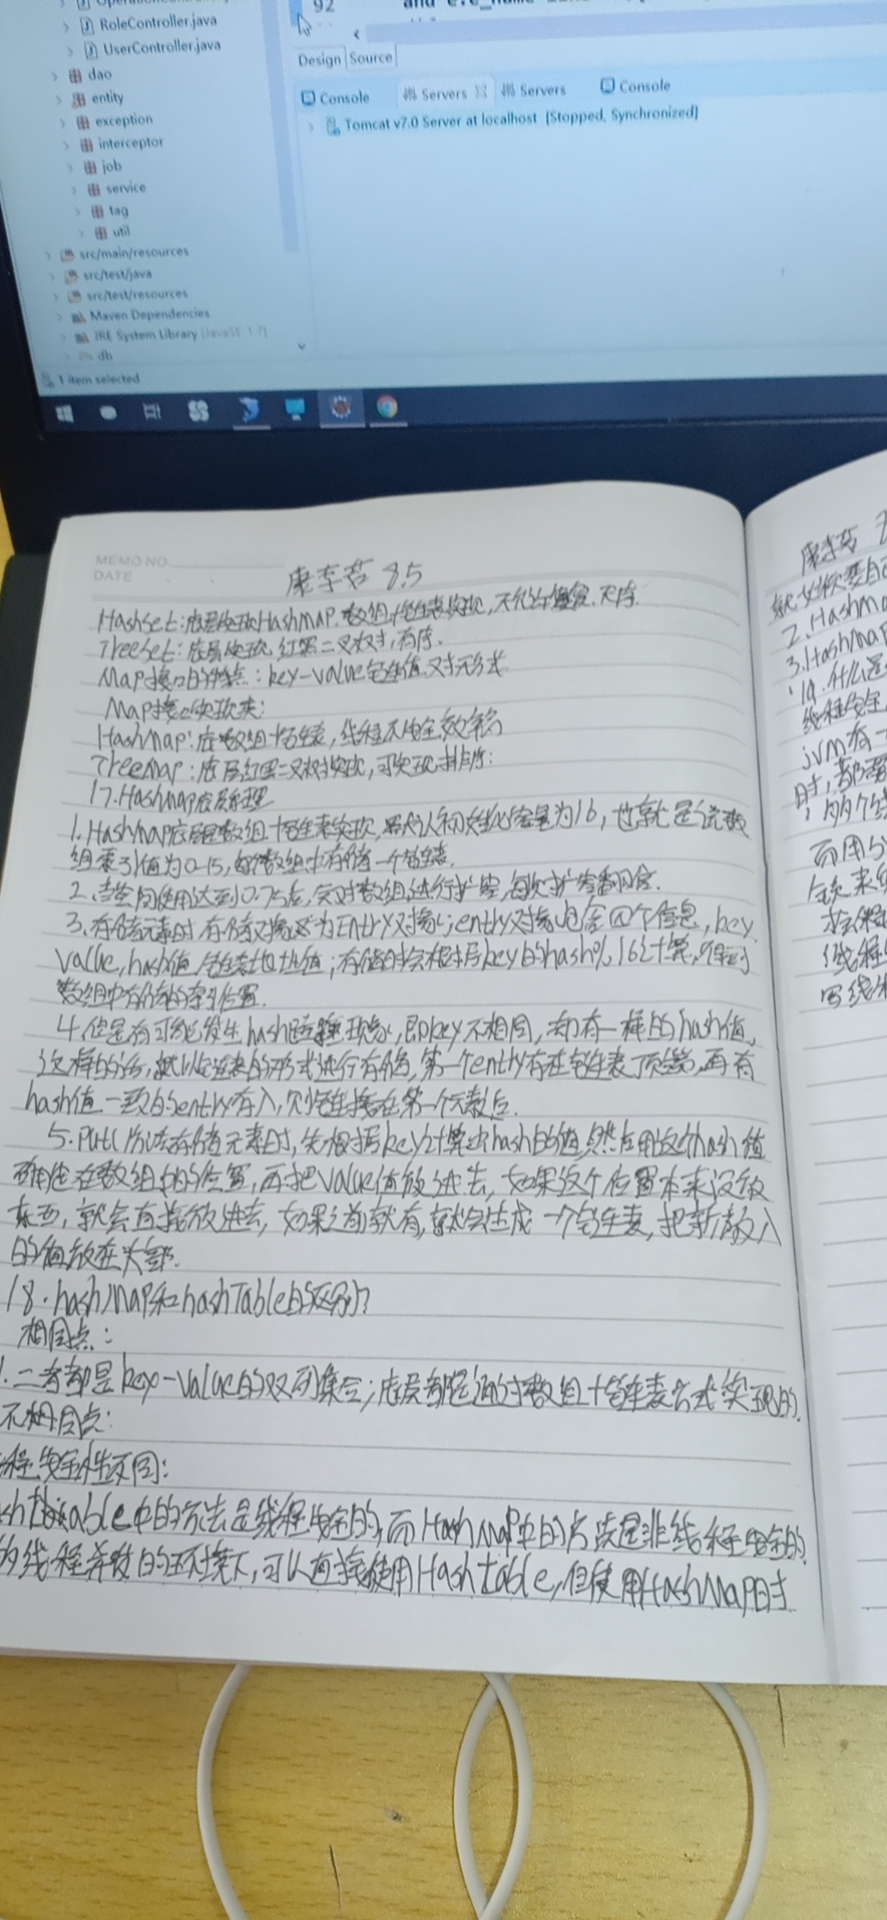 RoleController.java
UserController.java
dao
entity
exception
interceptor
job
service
tag
util
src/main/resources
src/test/java
src/test/resources
Maven Dependencies
JRE System Library [JavaSE-1.7]
db
1 item selected
92
Design Source
Console Servers Servers Console
Tomcat v7.0 Server at localhost [Stopped, Synchronized]
MEMO NO.
DATE
8.5
HashSet:底层实现HashMAP,数组+链表实现,不允许重复,无序.
TreeSet:底层实现红黑二叉树,有序.
Map接口的特点:key-value键值对形式
Map接口实现类:
HashMap:底数组+链表,线程不安全效率高
TreeMap:底层红黑二叉树实现,可实现排序:
17.HashMap底层原理
1.HashMap底层是数组+链表实现,默认初始化容量为16,也就是说数
组索引值为0-15,每个数组中存储一个链表.
2.当空间使用达到0.75后,会对数组进行扩容,每次扩容翻倍.
3.存储元素时,存储对象为Entry对象;entry对象包含四个信息,key,
value,hash值,链表地址值;存储时会根据key的hash%16计算,得到
数组中存储的索引位置.
4.但是有可能发生hash碰撞现象,即key不相同,却有一样的hash值,
这样的话,就以链表的形式进行存储,第一个entry存在链表顶端,再有
hash值一致的entry存入,则链接在第一个元素后.
5.Put()方法存储元素时,先根据key计算出hash的值,然后用这个hash值
确定在数组中的位置,再把value值放进去,如果这个位置本来没放
东西,就会直接放进去,如果之前就有,就会生成一个链表,把新放入
的值放在头部.
18.hashMap和hashTable的区别?
相同点:
1.二者都是key-value的双列集合;底层都是通过数组+链表方式实现的.
不相同点:
程安全性不同:
table中的方法是线程安全的,而HashMap中的方法是非线程安全的.
线程并发的环境下,可以直接使用Hashtable,但使用HashMap时
2.HashMa
3.HashMap
19.什么是
线程安全
jvm有一
时,都
而用